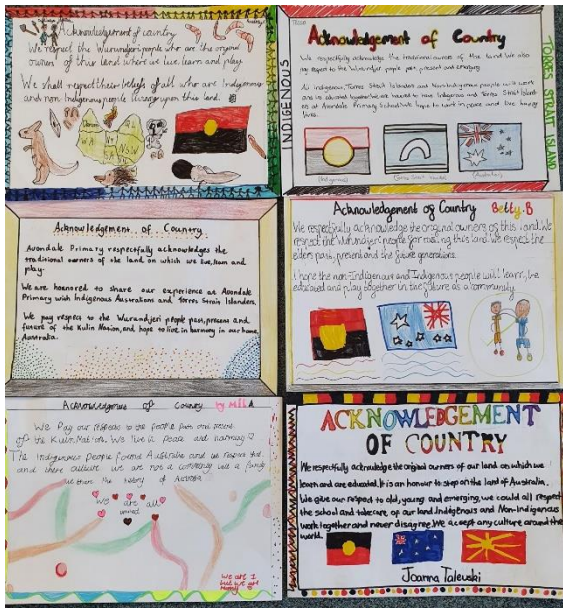 Acknowledgement of country
We respect the Wurundjeri people who are the original
owners of this land where we live, learn and play
We shall respect the beliefs of all who are Indigenous
and non-Indigenous people living upon this land.
WA
NT
SA
NSW
INDIGENOUS
TORRES STRAIT ISLAND
Acknowledgement of Country
We respectfully acknowledge the traditional owners of the land. We also
pay respect to the Wurundjeri people past, present and emerging
All indigenous, Torres Strait Islanders and Non Indigenous people will work
and be educated together. We are honoured to have Indigenous and Torres Strait Islanders
at Avondale Primary School. We hope to work in peace and live happy
lives.
(Indigenous)
(Torres Strait Islander)
(Australia)
Acknowledgement of Country
Avondale Primary respectfully acknowledges the
traditional owners of the land on which we live, learn and
play.
We are honored to share our experience at Avondale
Primary with Indigenous Australians and Torres Strait Islanders.
We pay respect to the Wurundjeri people past, present and
future of the Kulin Nation, and hope to live in harmony in our home,
Australia.
Acknowledgement of Country Betty.B
We respectfully acknowledge the original owners of this land. We
respect the Wurundjeri people for making this land. We respect the
elders past, present and the future generations.
I hope the non-Indigenous and Indigenous people will learn, be
educated and play together in the future as a community.
Acknowledgment of Country by MilA
We Pay our respects to the people past and present
of the Kulin Nation. We live in peace and harmony
The Indigenous people formed Australia and we respect that
and there culture we are not a community we a family
we share the history of Australia
we are all
united
We are 1
but we are
many
ACKNOWLEDGEMENT
OF COUNTRY
We respectfully acknowledge the original owners of our land on which we
learn and are educated. It is an honour to step on the land of Australia.
We give our respect to old, young and emerging, we could all respect
the school and take care of our land. Indigenous and Non-Indigenous
work together and never disagree. We accept any culture around the
world.
Joanna Talevski